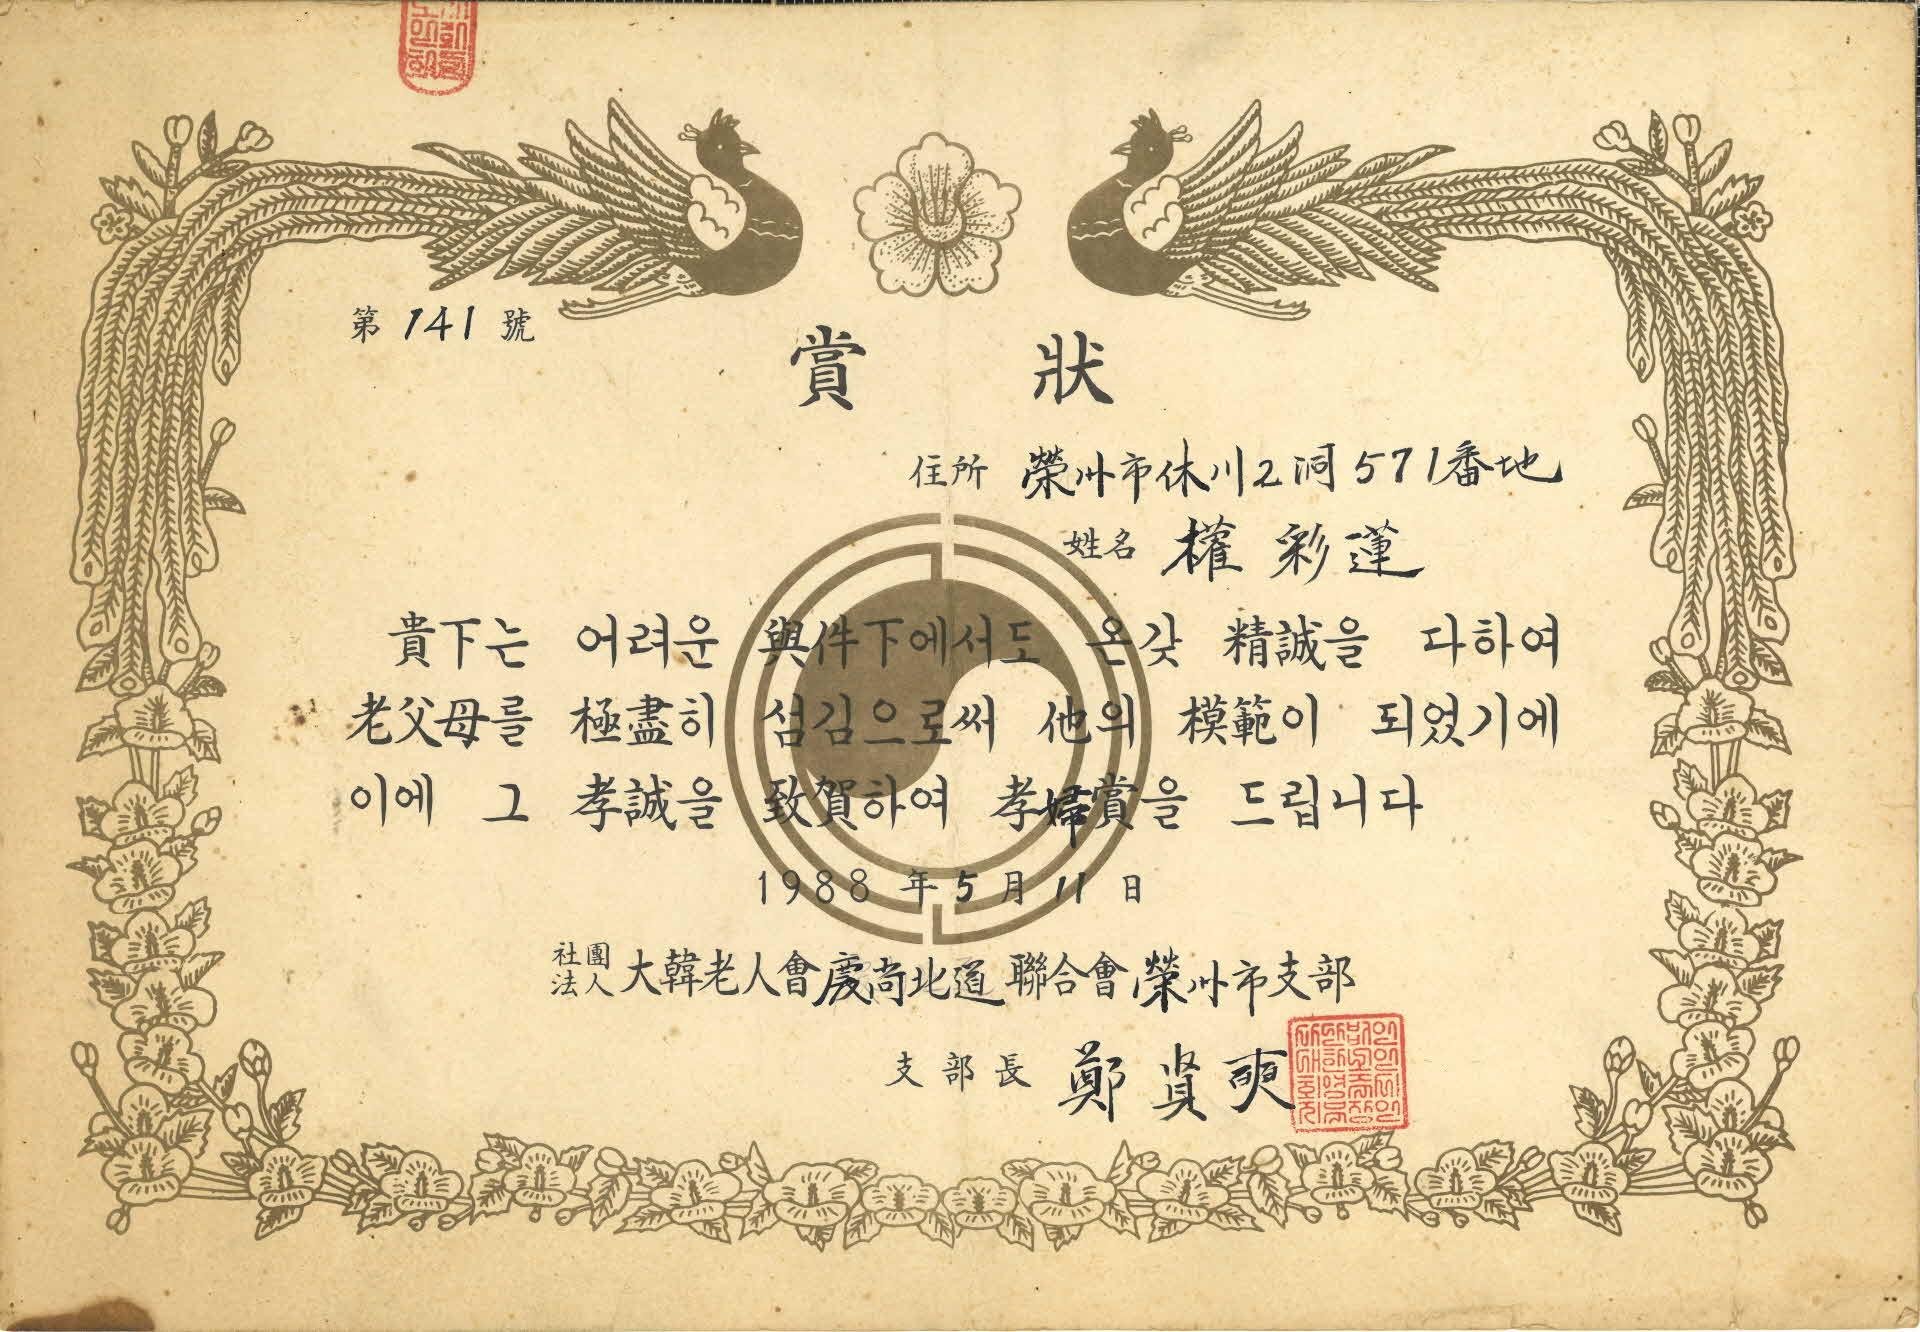 第 141 號
賞狀
住所 榮州市休川2洞571番地
姓名 權彩蓮
貴下는 어려운 與件下에서도 온갖 精誠을 다하여
老父母를 極盡히 섬김으로써 他의 模範이 되었기에
이에 그 孝誠을 致賀하여 孝婦賞을 드립니다
1988年 5月 11日
社團法人 大韓老人會慶尙北道聯合會榮州市支部
支部長 鄭賢奭